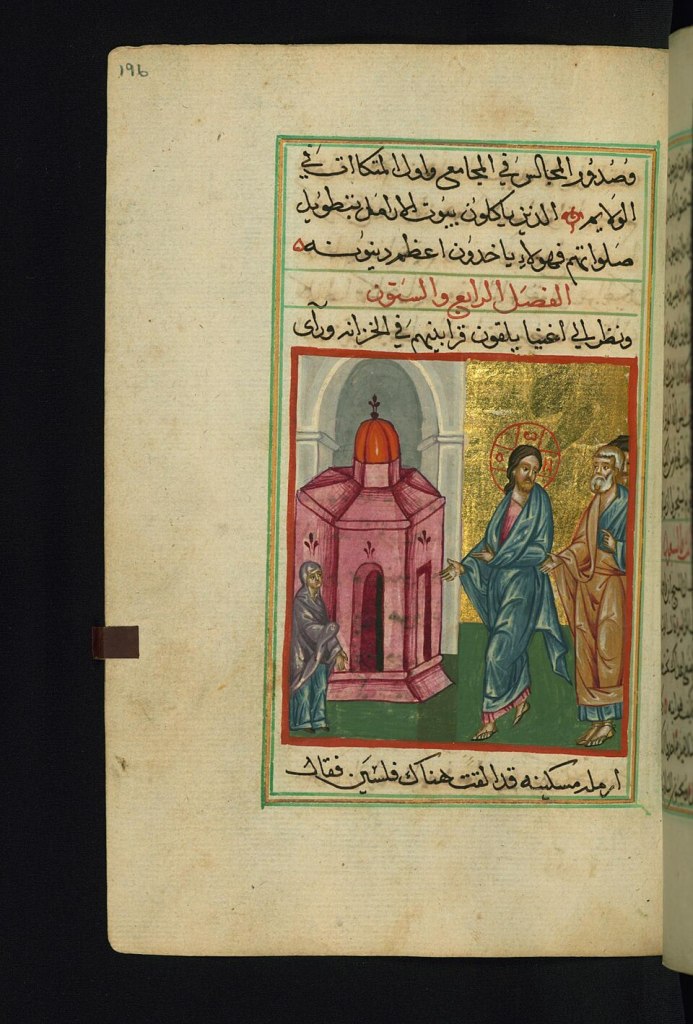 196
وصُدُور المجالس في المجامع واول المتكاات في
الولايم الدين ياكلون بيوت الارامل بتطويل
صلواتهم فهولاء ياخدون اعظم دينونه
الفصَل الرابع والستون
ونظر الي اغنيا يلقون قرابينهم في الخزانه ورآى
ارمله مسكينه قد القت هناك فلسَين فقال